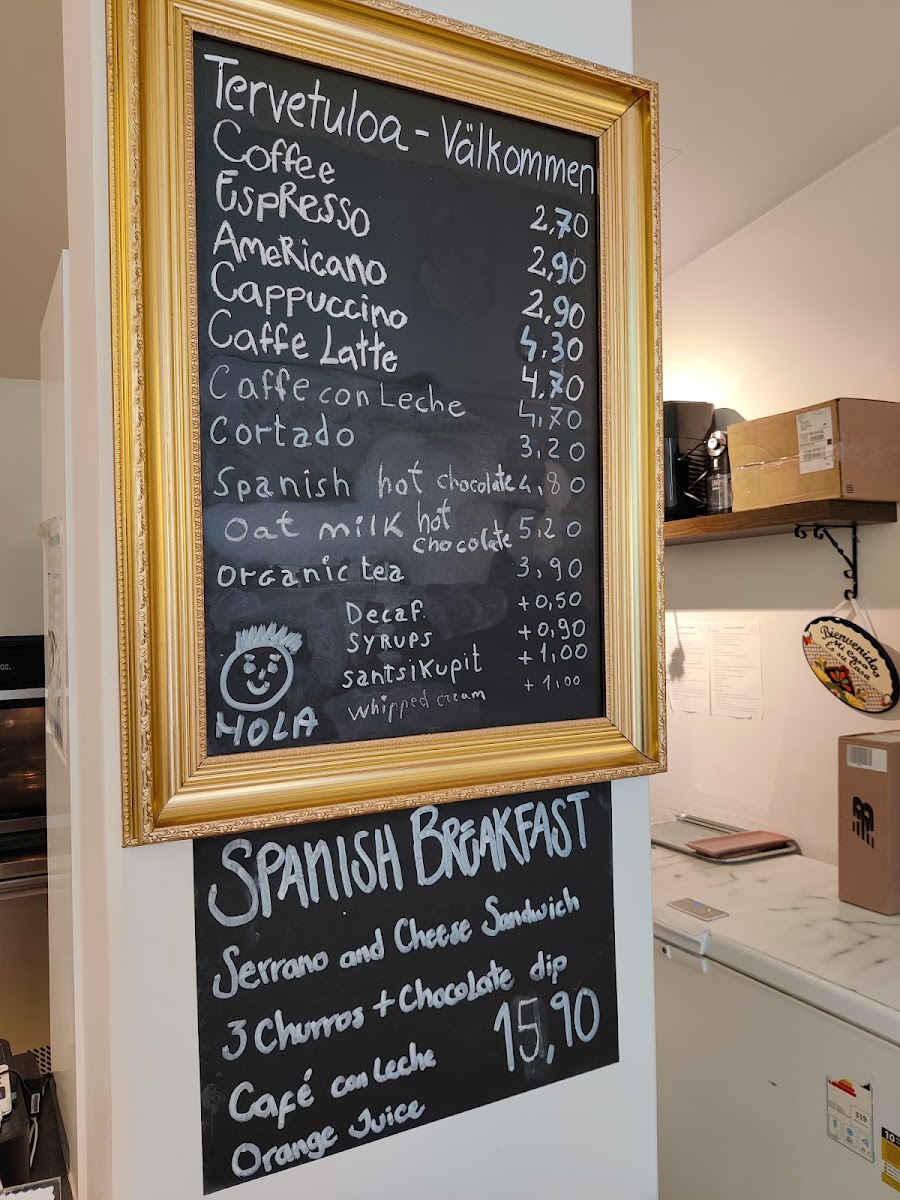 Tervetuloa - Välkommen
Coffee 2,70
Espresso 2,90
Americano 2,90
Cappuccino 4,30
Caffe Latte 4,70
Caffe con Leche 4,70
Cortado 3,20
Spanish hot chocolate 4,80
Oat milk hot chocolate 5,20
organic tea 3,90
Decaf. +0,50
SYRUPS +0,90
santsikupit +1,00
whipped cream +1,00
HOLA
SPANISH BREAKFAST
Serrano and Cheese Sandwich
3 Churros + Chocolate dip
Café con Leche 15,90
Orange Juice
Bienvenidos
Mi Casa
Es su Casa
319